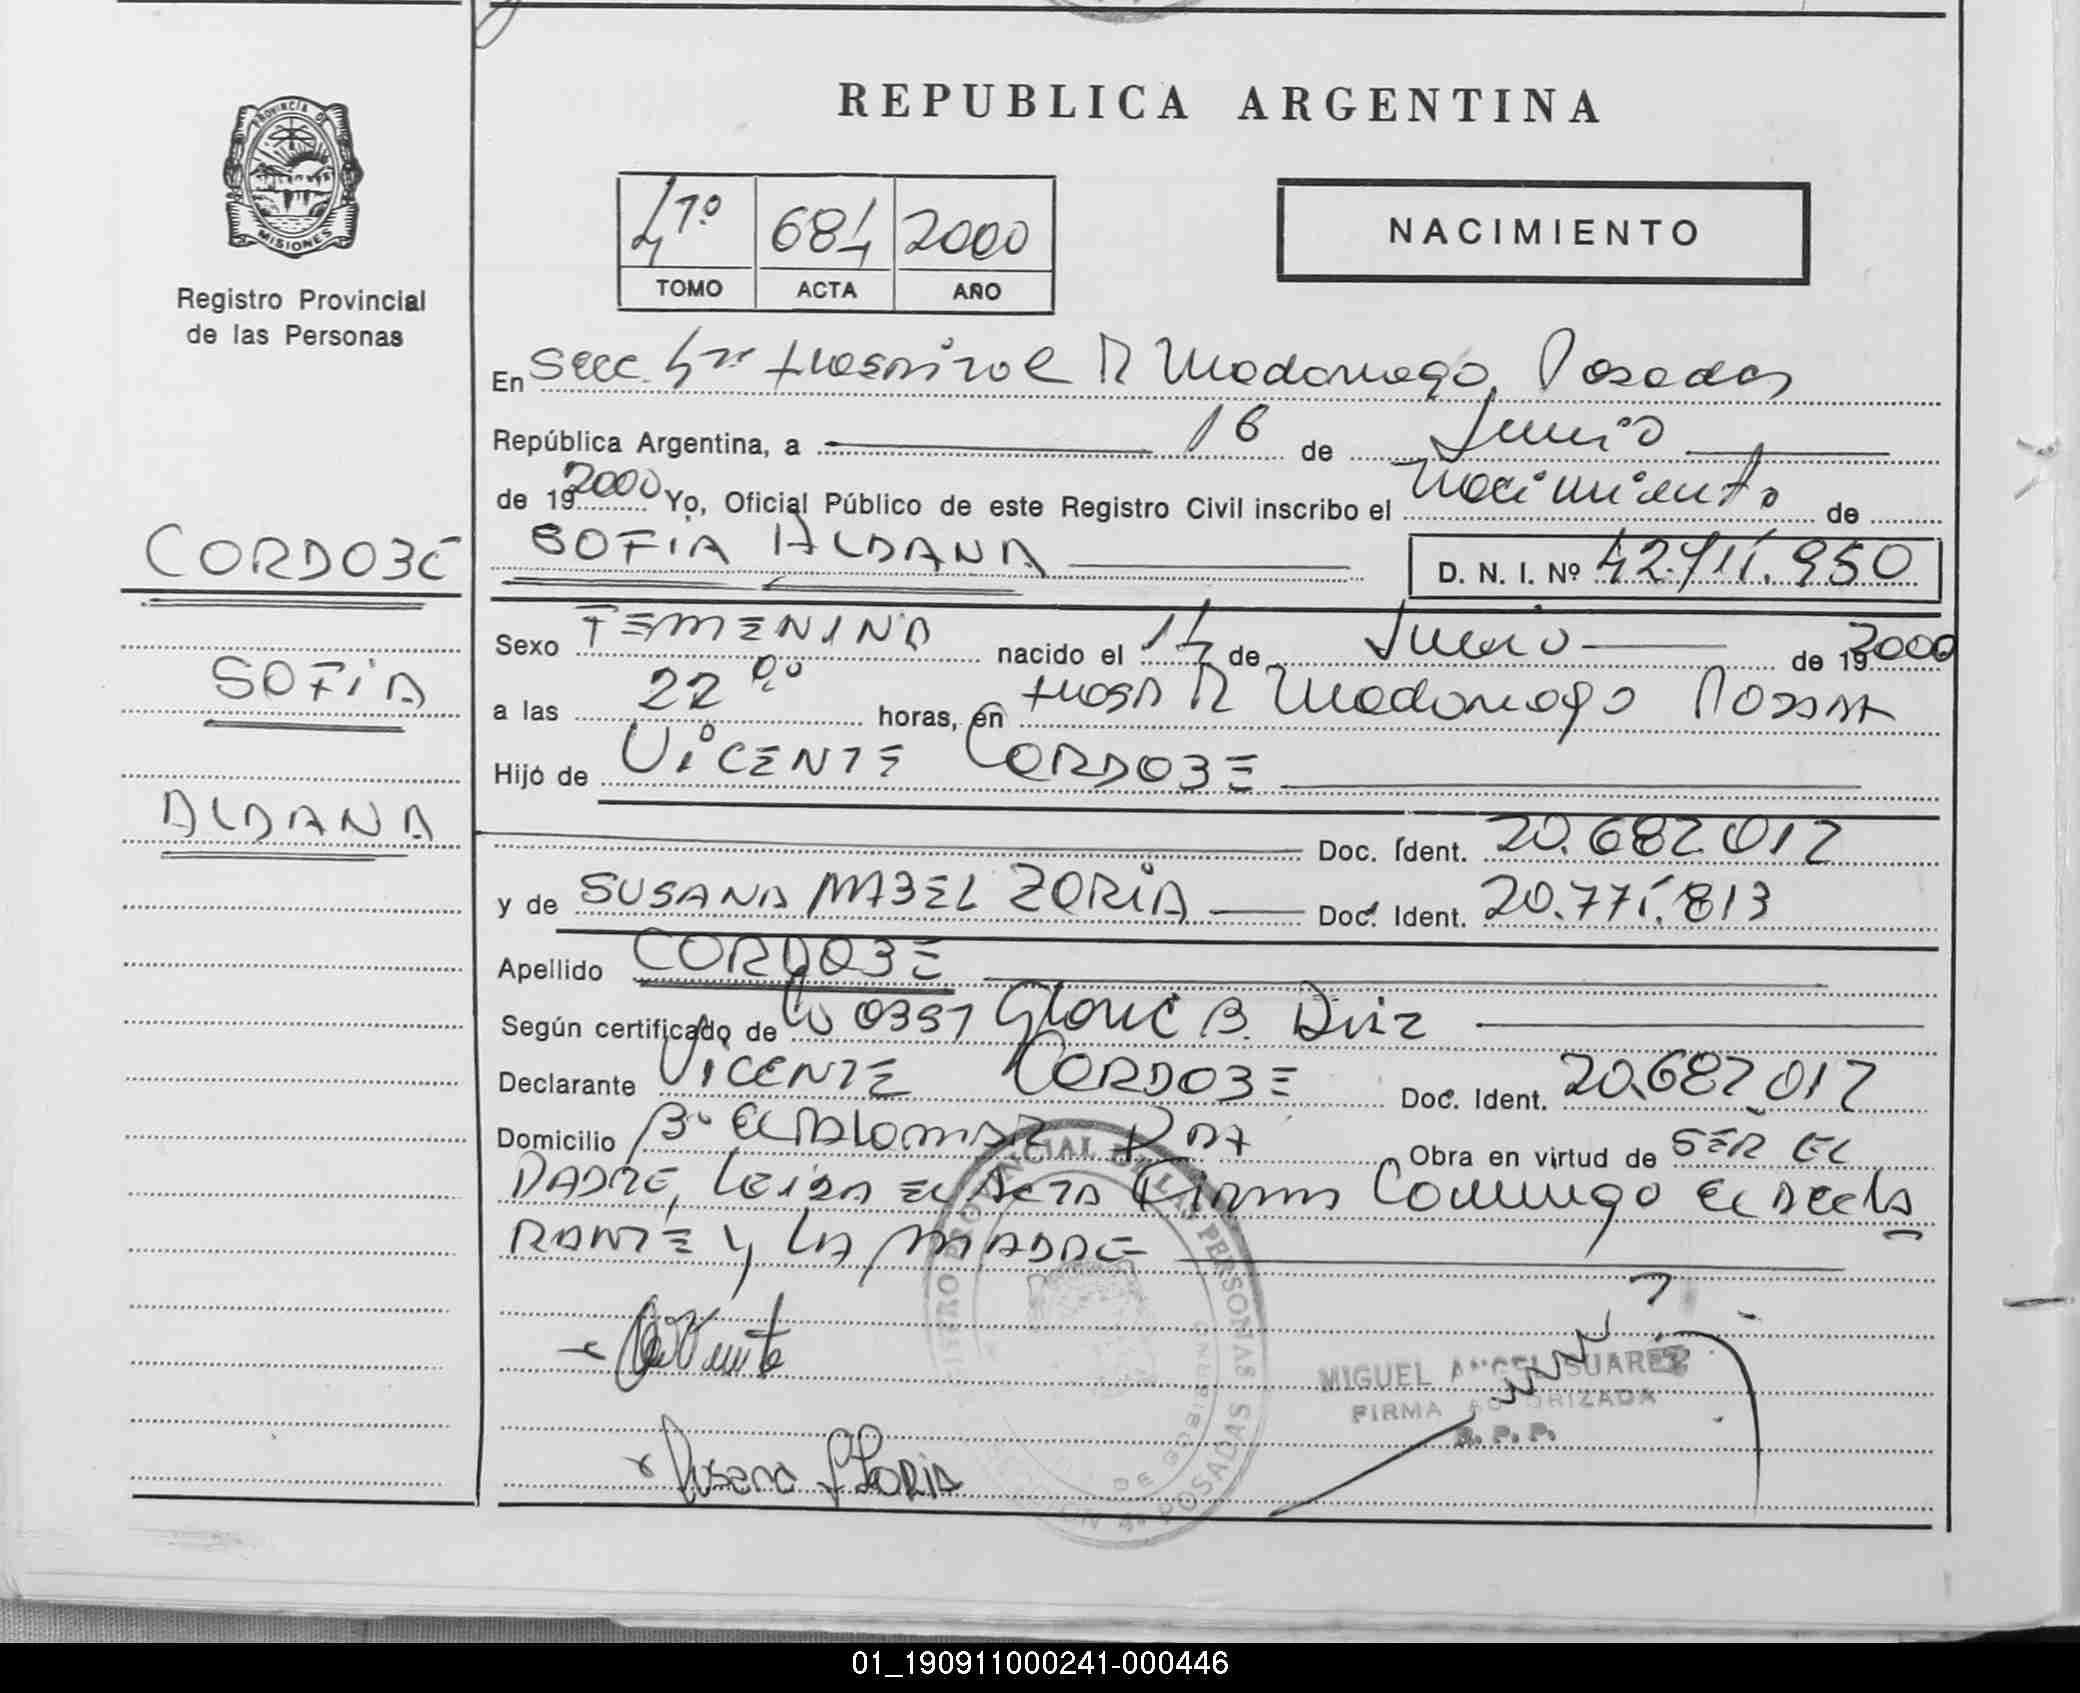 REPUBLICA ARGENTINA
PROVINCIA DE
MISIONES
Registro Provincial
de las Personas
4º 684 2000
TOMO ACTA AÑO
NACIMIENTO
En Secc. 4ta Hospital R Madariaga, Posadas
República Argentina, a 16 de Junio
de 19 2000 Yo, Oficial Público de este Registro Civil inscribo el Nacimiento de
CORDOBE
SOFIA ALDANA
D. N. I. Nº 42.711.950
Sexo FEMENINA nacido el 14 de Junio de 19 2000
SOFIA
a las 22 00 horas, en Hosp R Madariaga
Hijo de VICENTE CORDOBE
ALDANA
Doc. Ident. 20.682.012
y de SUSANA MABEL ZORIA Doc. Ident. 20.771.813
Apellido CORDOBE
Según certificado de 0351 B. Diz
Declarante VICENTE CORDOBE Doc. Ident. 20.682.012
Domicilio Bº El PALOMAR Obra en virtud de SER EL
PADRE, LEIDA EL ACTA Firma Conmigo el DECLA
RANTE Y LA MADRE
REGISTRO PROVINCIAL DE LAS PERSONAS
POSADAS
MIGUEL ANGEL SUAREZ
FIRMA AUTORIZADA
R. P. P.
Susana ZORIA
01_190911000241-000446